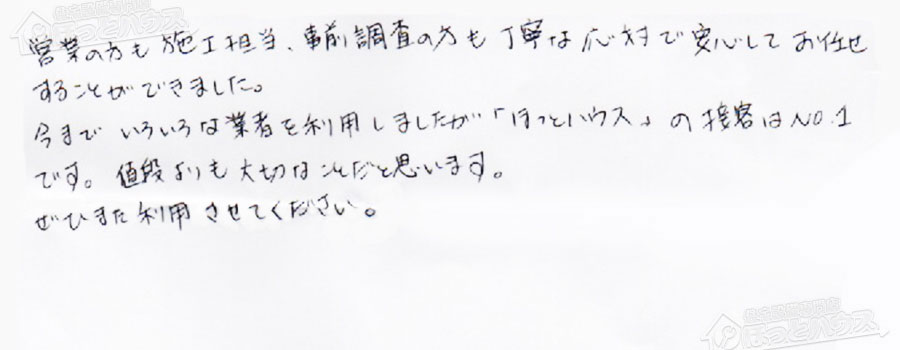 営業の方も施工担当、事前調査の方も丁寧な応対で安心してお任せ
することができました。
今までいろいろな業者を利用しましたが「ほっとハウス」の接客はNO.1
です。値段よりも大切なことだと思います。
ぜひまた利用させてください。
ほっとハウス